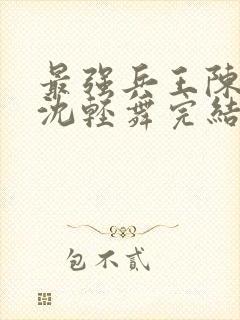 最强兵王陳
沈輕舞完結
包不貳